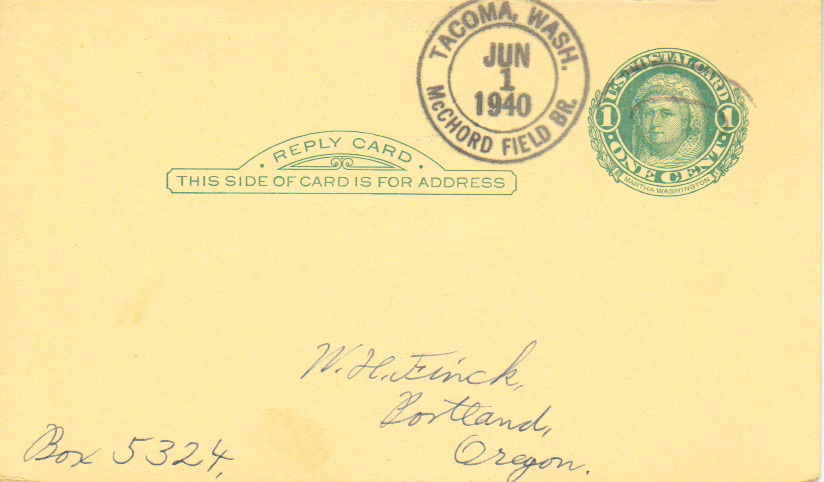 TACOMA, WASH.
JUN
1
1940
McCHORD FIELD BR.
U.S. POSTAL CARD
1 1
ONE CENT
MARTHA WASHINGTON
· REPLY CARD ·
THIS SIDE OF CARD IS FOR ADDRESS
W. H. Finck,
Portland,
Oregon.
Box 5324,